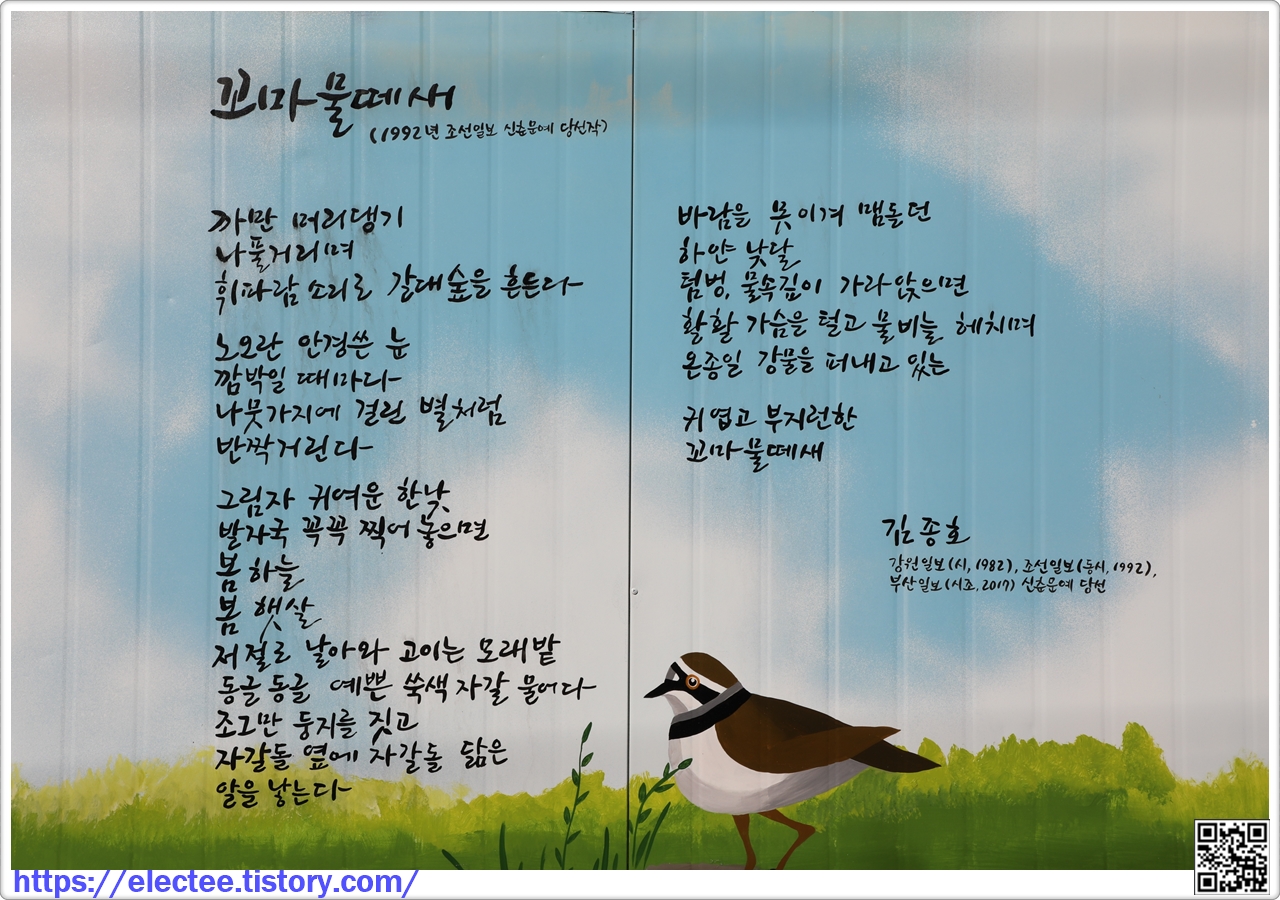 꼬마물떼새
(1992년 조선일보 신춘문예 당선작)
까만 머리댕기
나풀거리며
휘파람 소리로 갈대숲을 흔든다
노오란 안경쓴 눈
깜박일 때마다
나뭇가지에 걸린 별처럼
반짝거린다
그림자 귀여운 한낮
발자국 꼭꼭 찍어 놓으면
봄 하늘
봄 햇살
저절로 날아와 고이는 모래밭
동글동글 예쁜 쑥색 자갈 물어다
조그만 둥지를 짓고
자갈돌 옆에 자갈돌 닮은
알을 낳는다
바람을 못 이겨 맴돌던
하얀 낮달
텀벙, 물속깊이 가라앉으면
활활 가슴을 털고 물비늘 헤치며
온종일 강물을 퍼내고 있는
귀엽고 부지런한
꼬마물떼새
김종호
강원일보(시, 1982), 조선일보(동시, 1992),
부산일보(시조, 2017) 신춘문예 당선
https://electee.tistory.com/